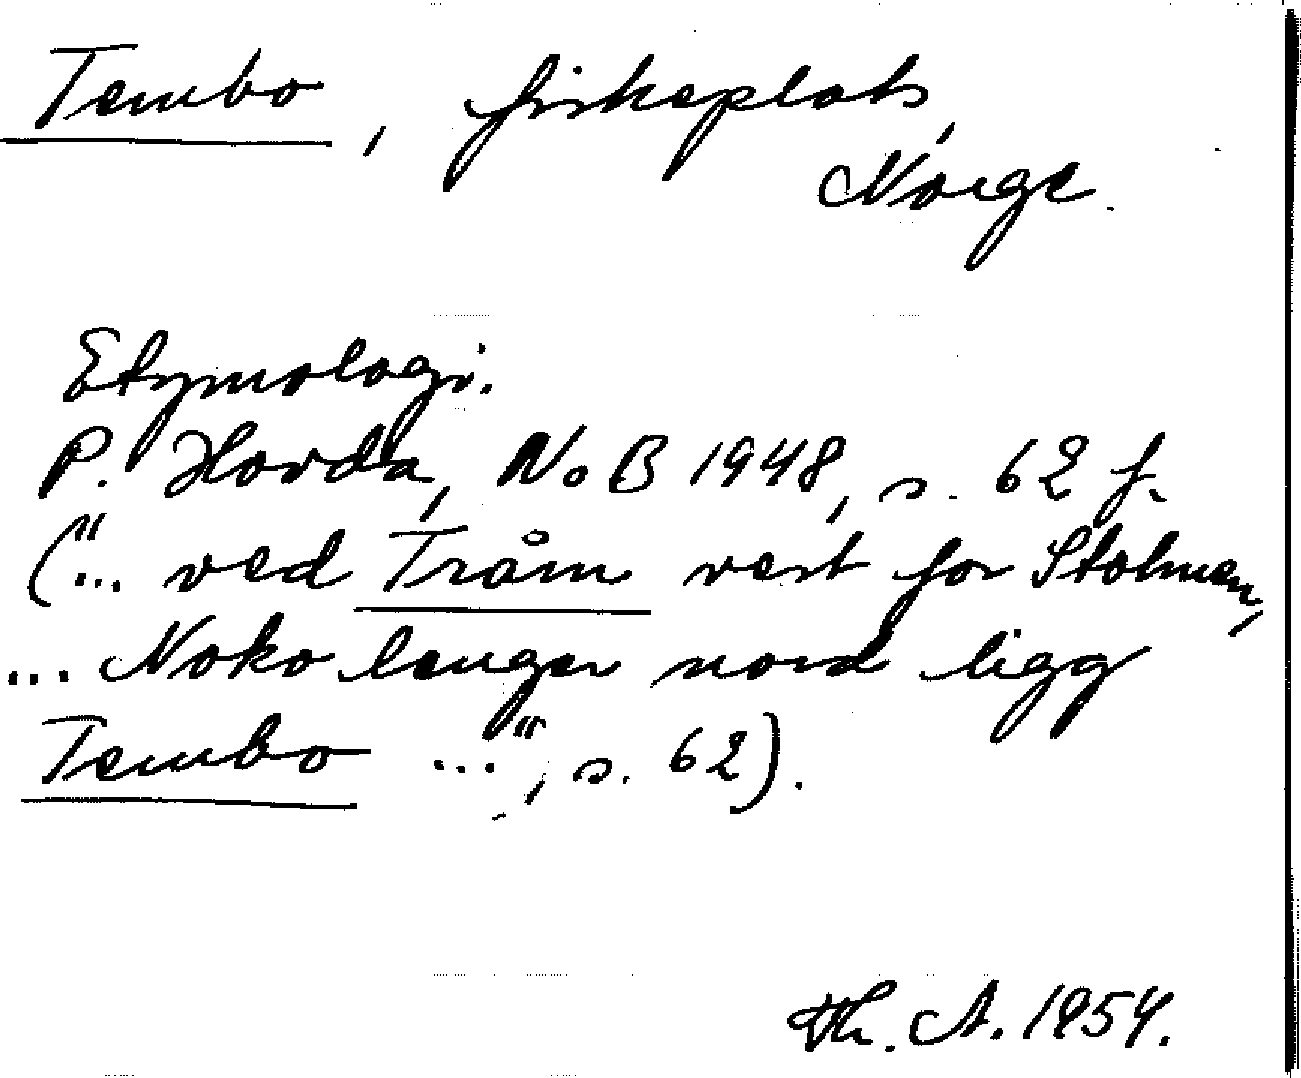 Tembo, fiskeplats,
Norge.
Etymologi.
P. Hovda, NoB 1948, s. 62 f.
("... ved Tråm vest for Stolmen,
... Noko lenger nord ligg
Tembo ...", s. 62).
Th. A. 1954.